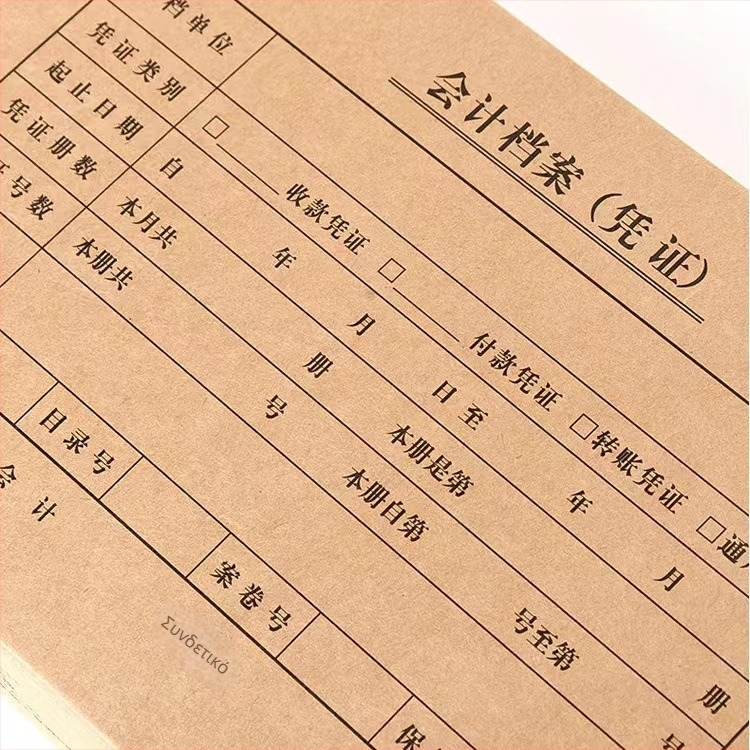 会计档案（凭证）
档单位
凭证类别 □ 收款凭证 □ 付款凭证 □转账凭证 □通
起止日期 自 年 月 日至 年 月
凭证册数 本月共 册 本册是第 册
号数 本册共 号 本册自第 号至第 号
目录号 案卷号 保
会计
Συνδετικό